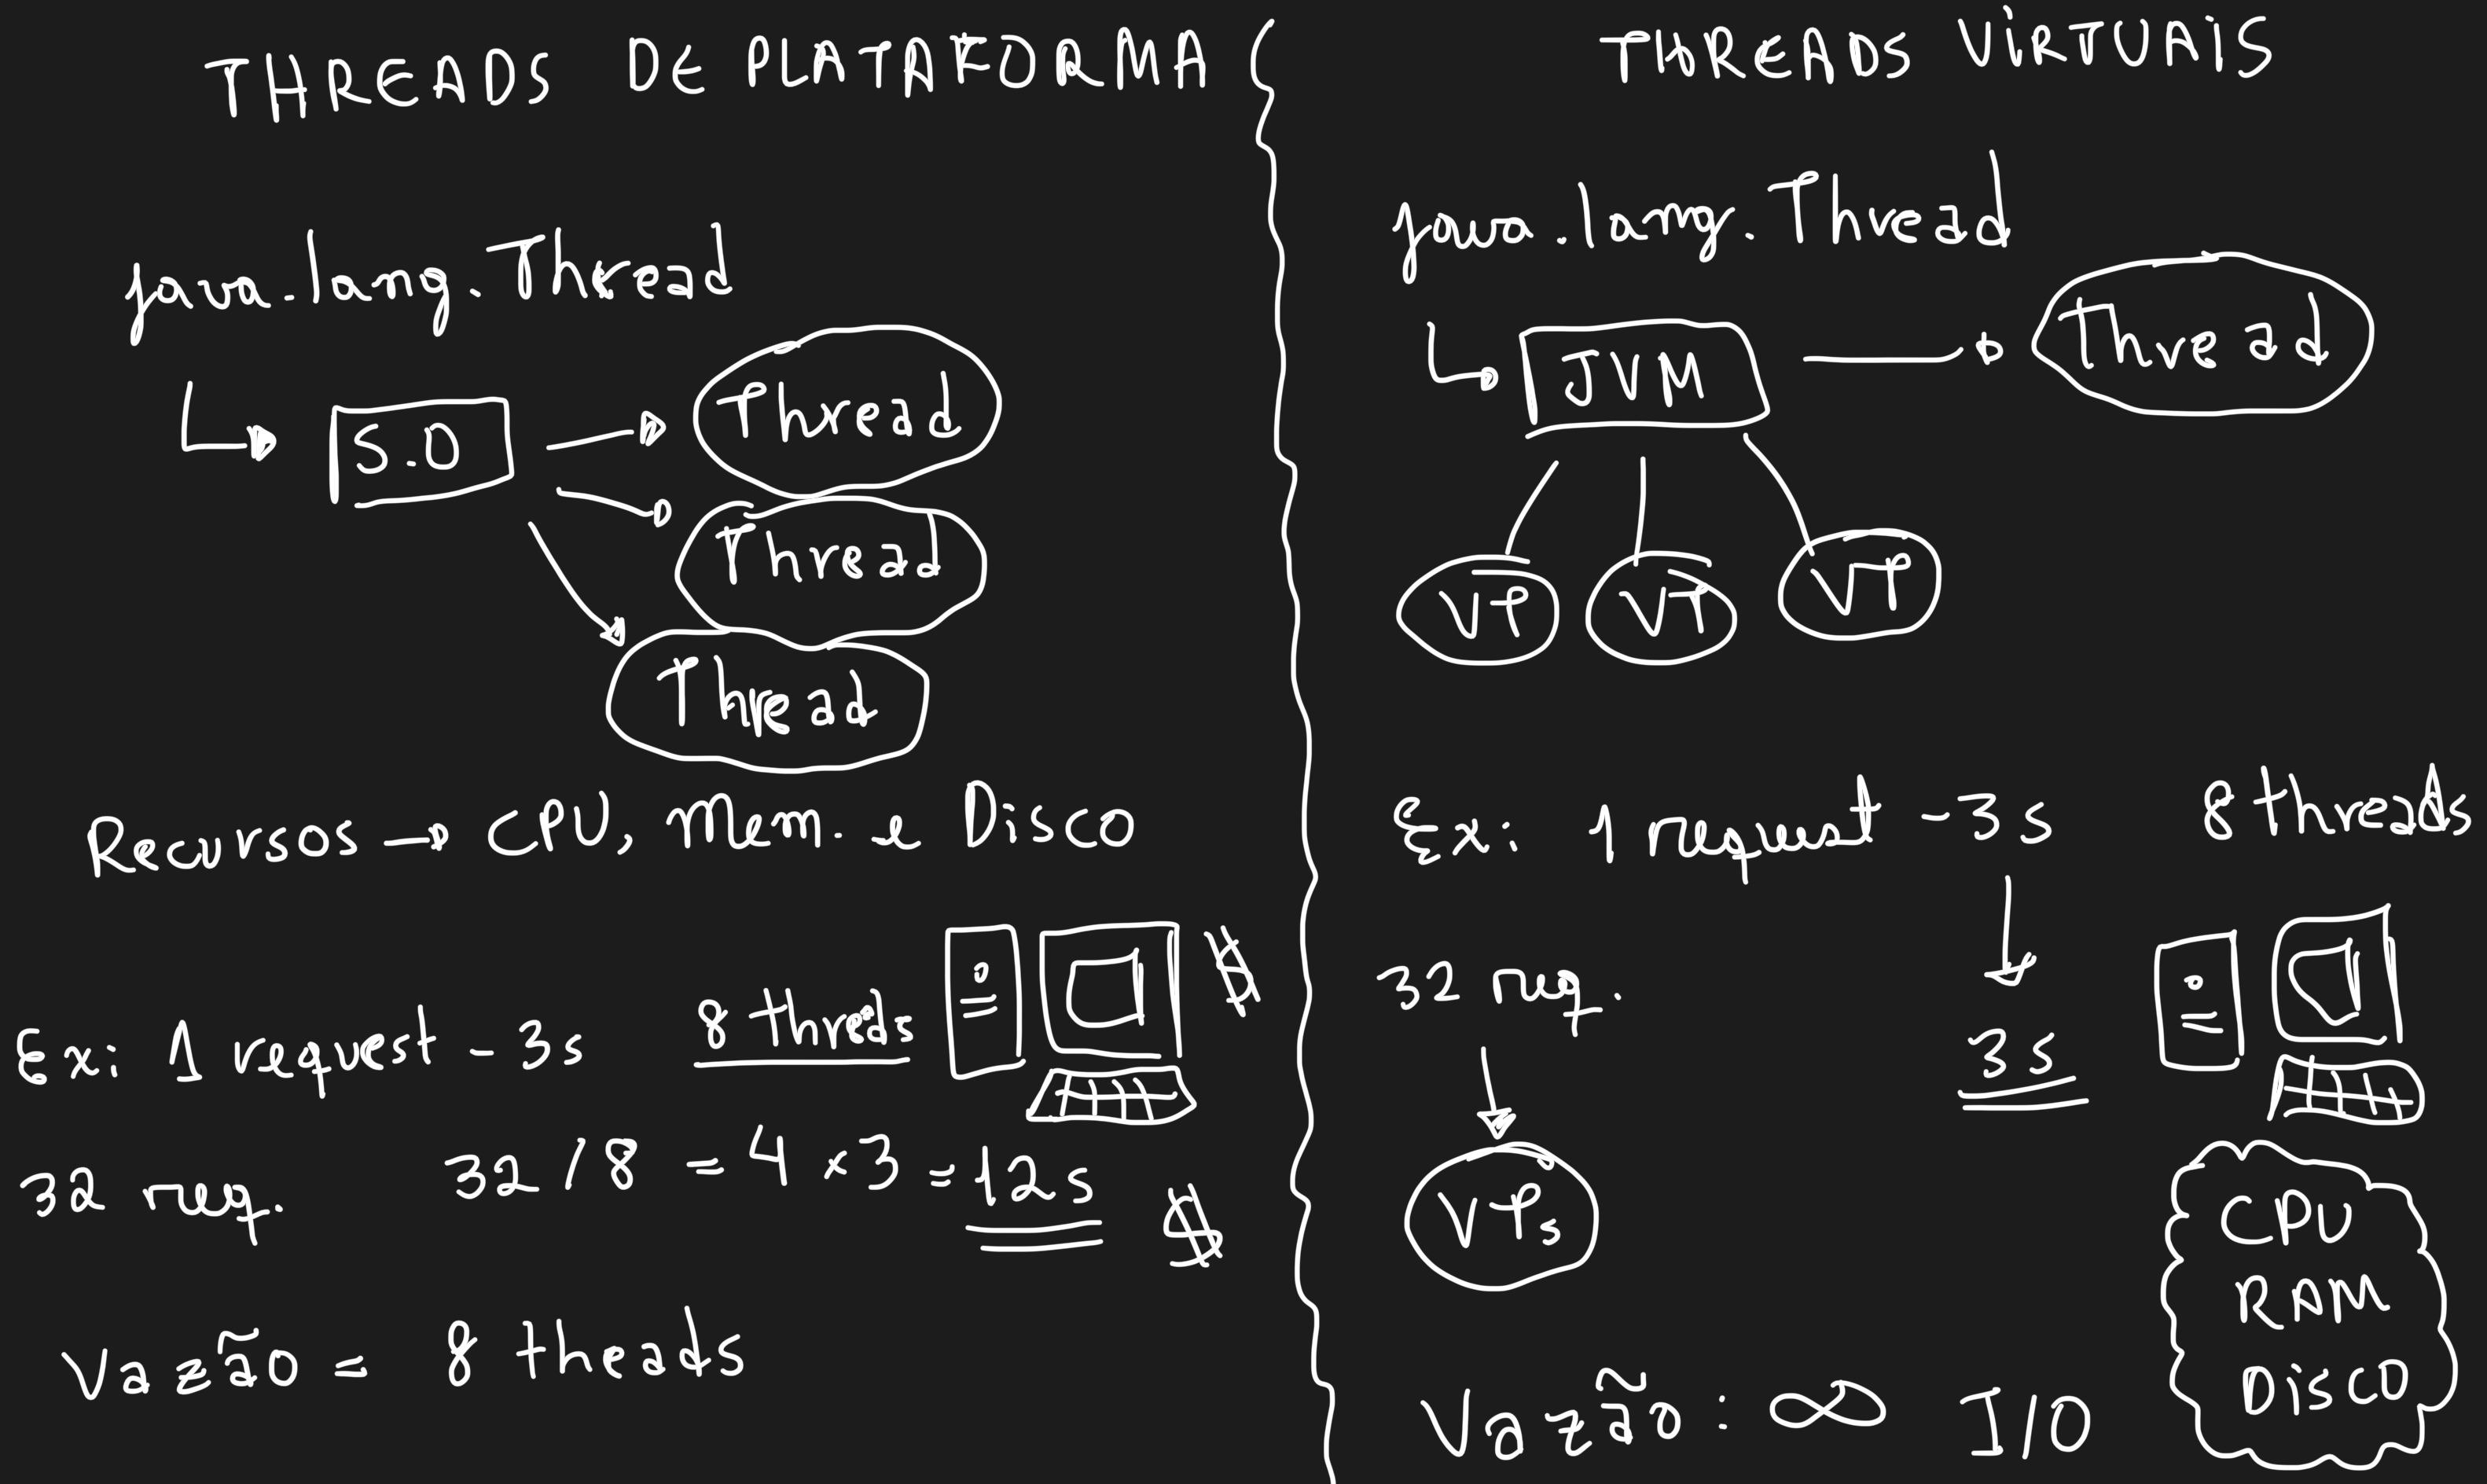 THREADS DE PLATAFORMA
java.lang.Thread
S.O
Thread
Thread
Thread
Recursos → CPU, Mem. e Disco
Ex: 1 request - 3s 8 threds
$
32 req. 32 / 8 = 4 x 3 = 12s
$
Vazão = 8 theads
THREADS VIRTUAIS
java.lang.Thread
JVM → Thread
VT VT VT
Ex: 1 request - 3s 8 threads
32 req.
3s
VTs
CPU
RAM
DISCO
Vazão: ∞ I/O